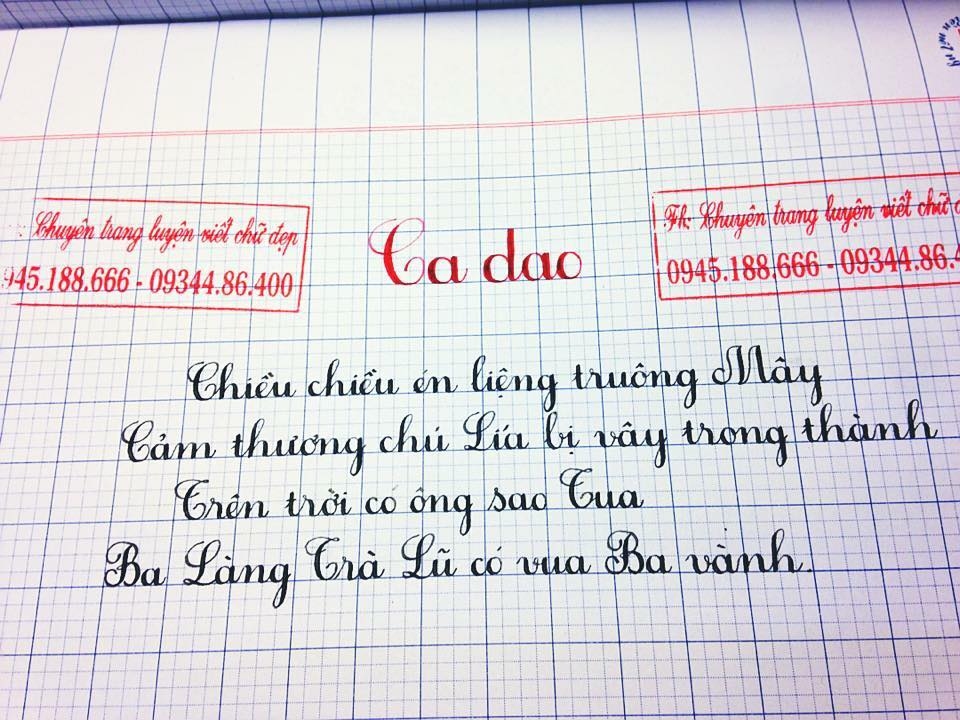 Chuyên trang luyện viết chữ đẹp
945.188.666 - 09344.86.400
Ca dao
Fb: Chuyên trang luyện viết chữ
0945.188.666 - 09344.86.
Chiều chiều én liệng truông Mây
Cảm thương chú Lía bị vây trong thành
Trên trời có ông sao Tua
Ba Làng Trà Lũ có vua Ba vành.